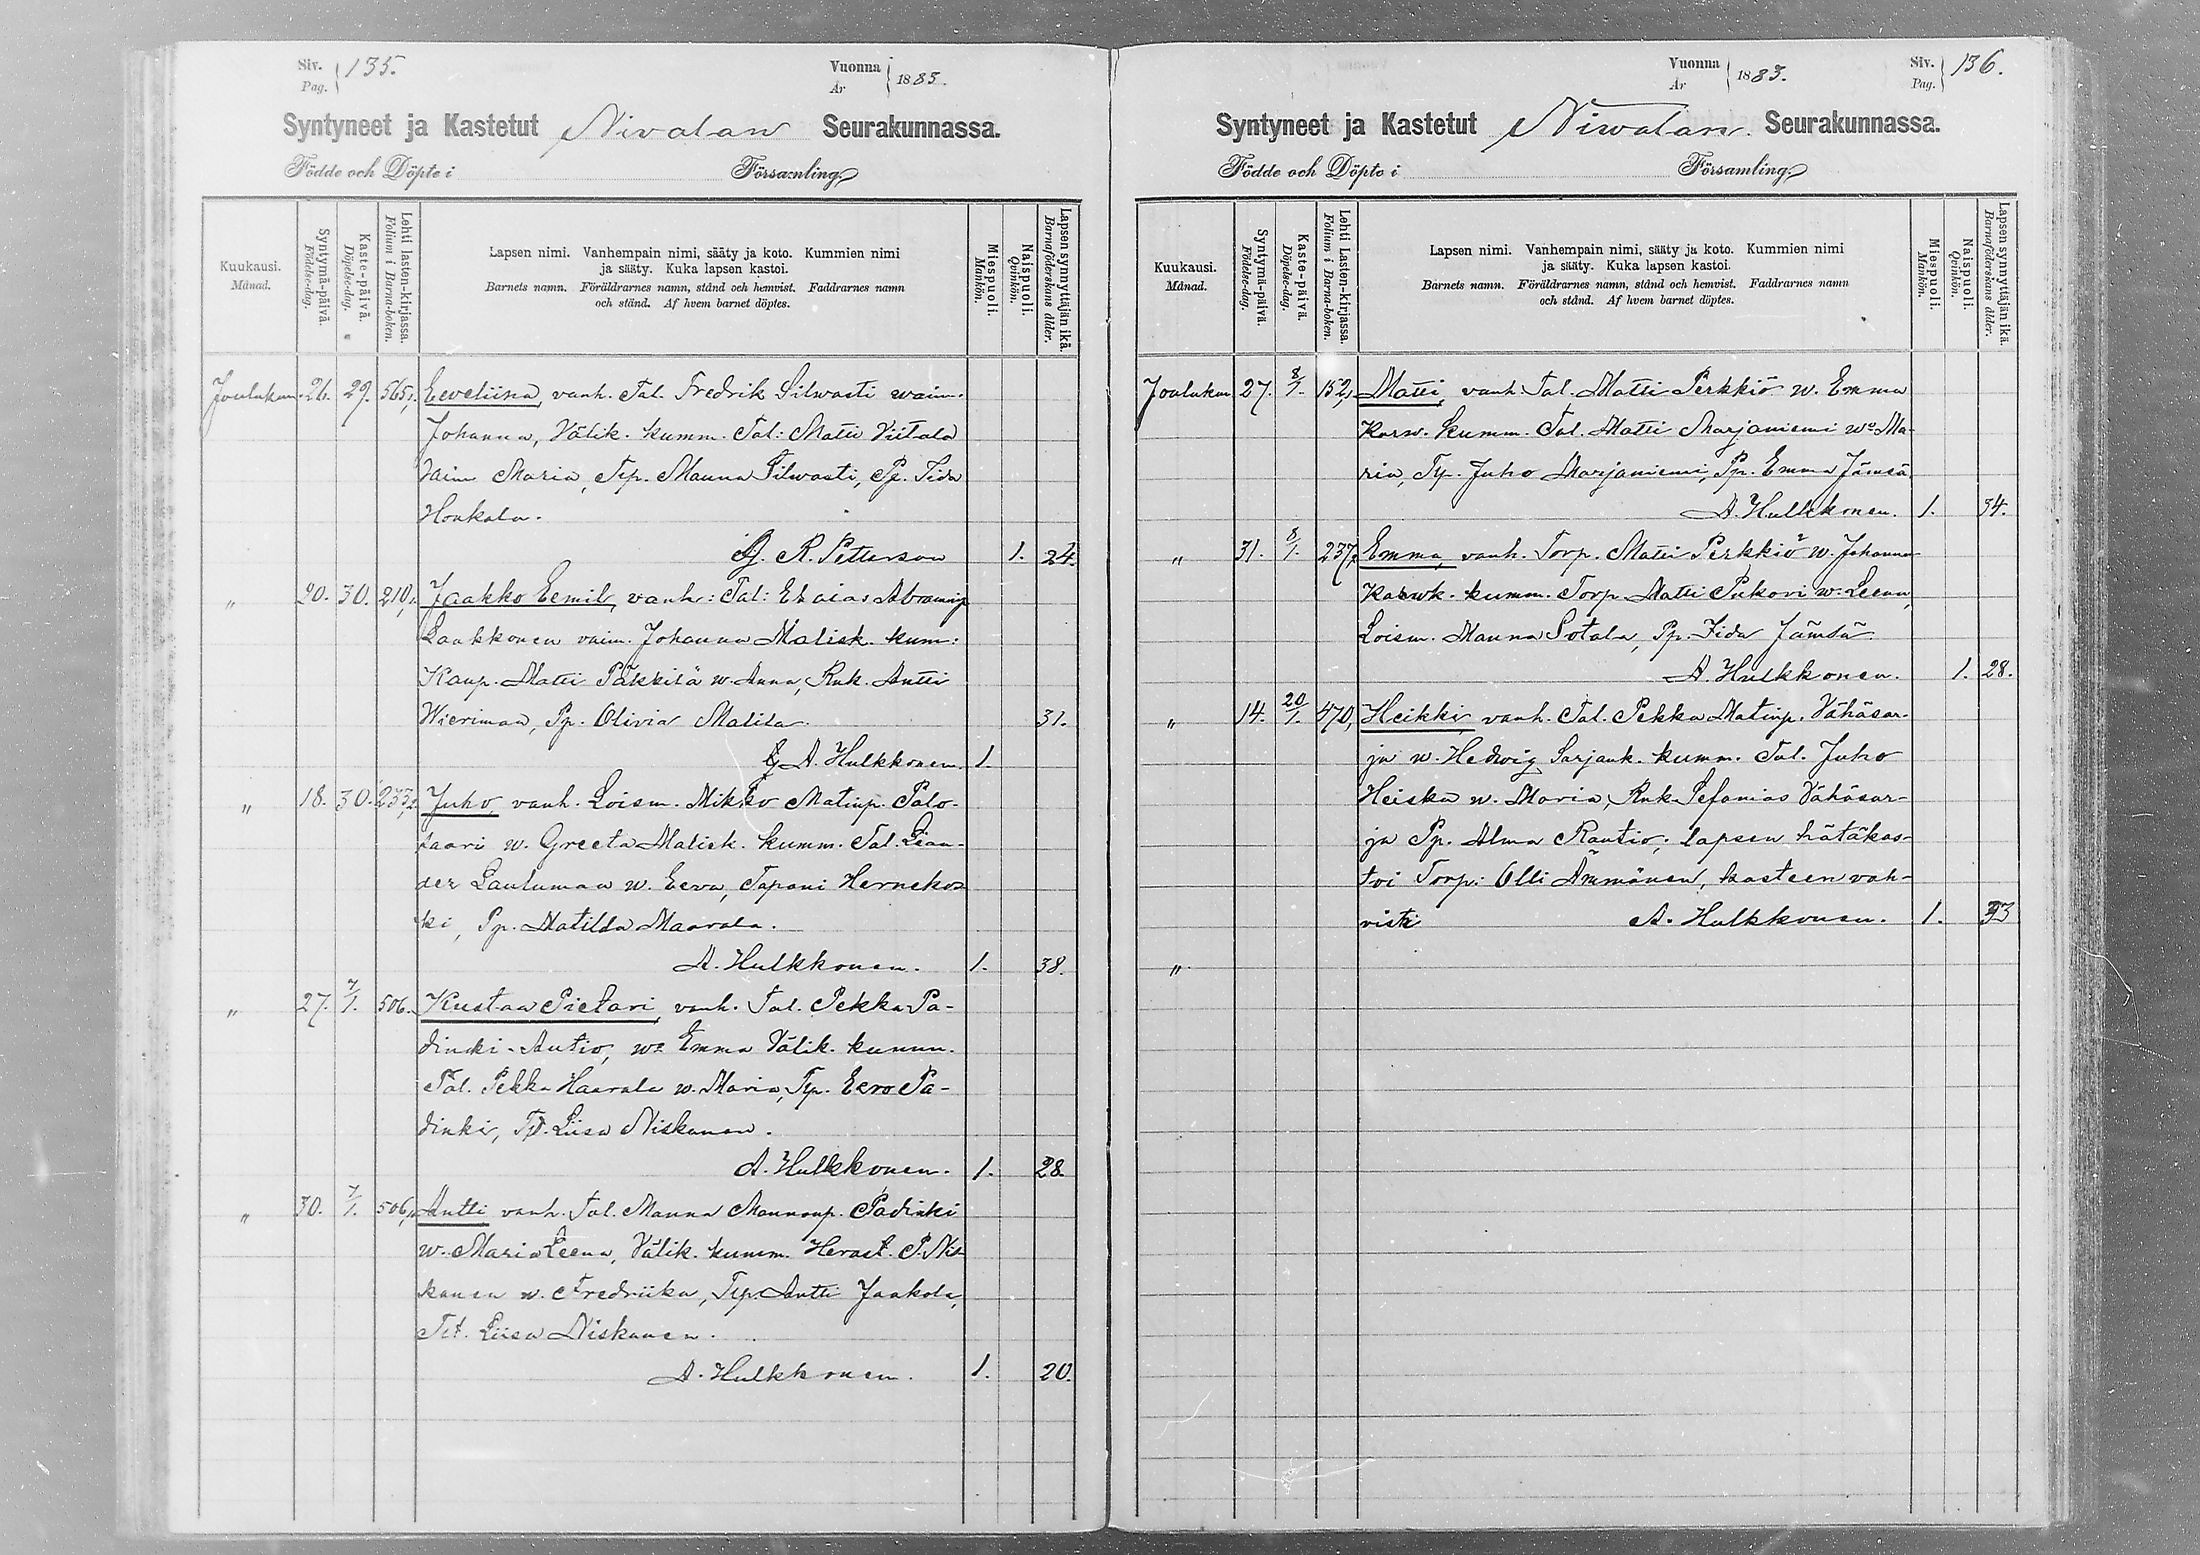 Siv. Pag. 135.
Vuonna År 1883.
Syntyneet ja Kastetut Nivalan Seurakunnassa.
Födde och Döpte i Församling.
Kuukausi. Månad.
Syntymä-päivä. Födelse-dag.
Kaste-päivä. Döpelse-dag.
Lehti lasten-kirjassa. Folium i Barna-boken.
Lapsen nimi. Vanhempain nimi, sääty ja koto. Kummien nimi
ja sääty. Kuka lapsen kastoi.
Barnets namn. Föräldrarnes namn, stånd och hemvist. Faddrarnes namn
och stånd. Af hvem barnet döptes.
Miespuoli. Mankön.
Naispuoli. Qvinkön.
Lapsen synnyttäjän ikä. Barnaföderskans ålder.
Joulukuu. 26. 29. 565,1. Eeveliina, vanh. Tal. Fredrik Silwasti waim.
Johanna, Välik. kumm. Tal: Matti Viitala
Vaim Maria, Tp. Manna Silwasti, Pp. Iida
Honkala.
G. R. Petterson 1. 24.
" 20. 30. 210, Jaakko Eemil, vanh: Tal: Esaias Abraminp
Laakkonen vaim. Johanna Malisk. kum:
Kaup. Matti Päkkilä w. Anna, Ruk. Antti
Wierimaa, Pp. Olivia Malila. 31.
A. Hulkkonen. 1.
" 18. 30. 233, Juho, vanh. Loism. Mikko Matinp. Palo-
saari w. Greeta Malisk. kumm. Tal. Lean-
der Lauluman w. Eeva, Tapani Hernekos
ki, Pp. Matilda Maarala.
A. Hulkkonen. 1. 38.
" 27. 7/1. 506. Kustaa Pietari, vanh. Tal. Pekka Pa-
dinki-Autio, w. Emma Välik. kumm.
Tal. Pekka Haarala w. Maria, Tp. Eero Pa-
dinki, Tt. Liisa Niskanen.
A. Hulkkonen. 1. 28.
" 30. 7/1. 506, Antti vanh. Tal. Manna Mannanp. Padinki
w. Maria Leena, Välik. kumm. Herast. P. Nis-
kanen w. Fredriika, Tp. Antti Jaakola,
Tt. Liisa Niskanen.
A. Hulkkonen. 1. 20.
Vuonna År 1883.
Siv. Pag. 136.
Syntyneet ja Kastetut Niwalan Seurakunnassa.
Födde och Döpte i Församling.
Kuukausi. Månad.
Syntymä-päivä. Födelse-dag.
Kaste-päivä. Döpelse-dag.
Lehti Lasten-kirjassa. Folium i Barna-boken.
Lapsen nimi. Vanhempain nimi, sääty ja koto. Kummien nimi
ja sääty. Kuka lapsen kastoi.
Barnets namn. Föräldrarnes namn, stånd och hemvist. Faddrarnes namn
och stånd. Af hvem barnet döptes.
Miespuoli. Mankön.
Naispuoli. Qvinkön.
Lapsen synnyttäjän ikä. Barnaföderskans ålder.
Joulukuu 27. 8/1. 152, Matti, vanh. Tal. Matti Perkkiö w. Emma
Karw. kumm. Tal. Matti Marjaniemi w: Ma-
ria, Tp. Juho Marjaniemi, Pp. Emma Jämsä.
A. Hulkkonen. 1. 34.
" 31. 8/1. 237, Emma, vanh. Torp. Matti Perkkiö w. Johanna
Karwk. kumm. Torp. Matti Pukari w. Leena,
Loism. Manna Sotala, Pp. Iida Jämsä.
A. Hulkkonen. 1. 28.
" 14. 20/1. 470, Heikki, vanh. Tal. Pekka Matinp. Vähäsar-
ja w. Hedwig Sarjank. kumm. Tal. Juho
Heiska w. Maria, Ruk. Sefanias Vähäsar-
ja Pp. Alma Rautio; lapsen hätäkas-
toi Torp: Olli Ämmänen, kasteen vah-
visti A. Hulkkonen. 1. 33
"